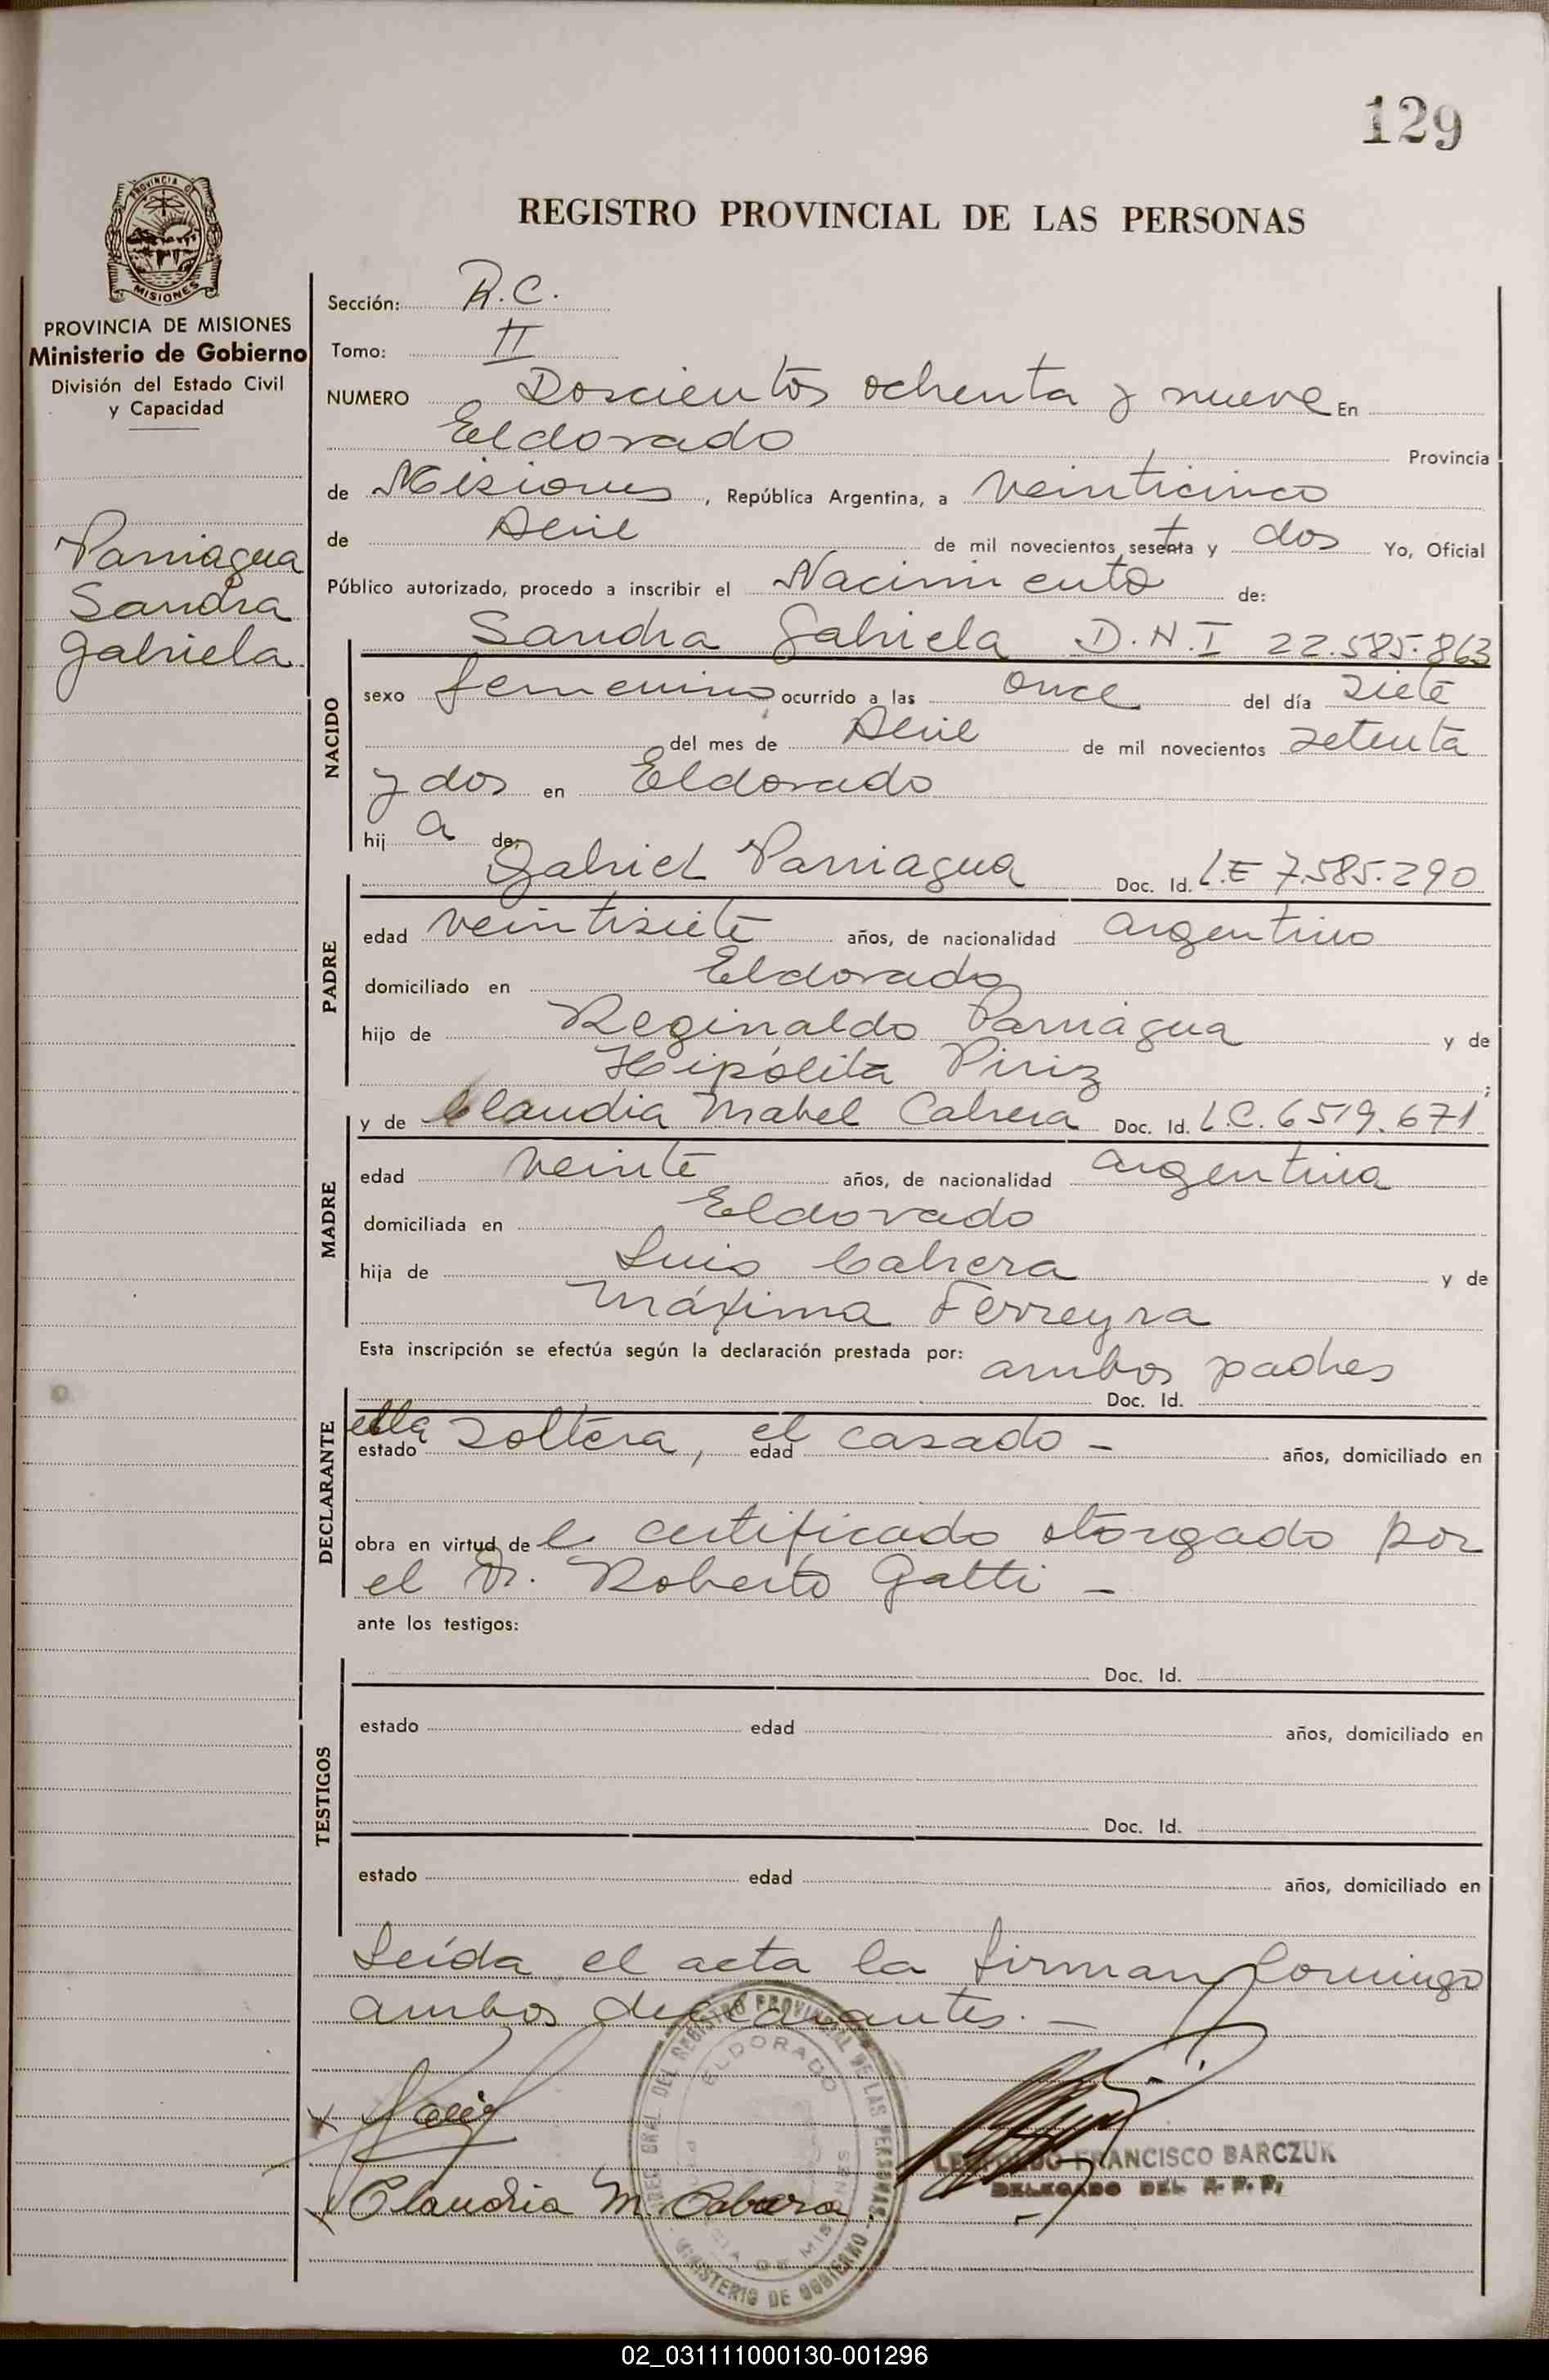 129
REGISTRO PROVINCIAL DE LAS PERSONAS
PROVINCIA DE MISIONES
PROVINCIA DE MISIONES
Ministerio de Gobierno
División del Estado Civil
y Capacidad
Parriagua
Sandra
Gabriela
Sección: R.C.
Tomo: II
NUMERO Doscientos ochenta y nueve En
Eldorado Provincia
de Misiones, República Argentina, a veinticinco
de Abril de mil novecientos sesenta y dos Yo, Oficial
Público autorizado, procedo a inscribir el Nacimiento de:
Sandra Gabriela D.N.I 22.585.863
NACIDO
sexo femenino ocurrido a las once del día siete
del mes de Abril de mil novecientos setenta
y dos en Eldorado
hij a de:
PADRE
Gabriel Parriagua Doc. Id. L.E 7.585.290
edad veintisiete años, de nacionalidad argentino
domiciliado en Eldorado
hijo de Reginaldo Parriagua y de
Hipólita Piriz ;
MADRE
y de Claudia Mabel Cabrera Doc. Id. L.C. 6519.671
edad veinte años, de nacionalidad argentina
domiciliada en Eldorado
hija de Luis Cabrera y de
Máxima Ferreyra
Esta inscripción se efectúa según la declaración prestada por: ambos padres
DECLARANTE
Doc. Id.
ella estado soltera, el edad casado - años, domiciliado en
obra en virtud de l certificado otorgado por
el Dr. Roberto Gatti -
ante los testigos:
TESTIGOS
Doc. Id.
estado edad años, domiciliado en
Doc. Id.
estado edad años, domiciliado en
Leída el acta la firman conmigo
ambos declarantes. -
x
x Claudia M. Cabrera
DIREC. GRAL. DEL REGISTRO PROVINCIAL DE LAS PERSONAS - MINISTERIO DE GOBIERNO
ELDORADO
PROVINCIA DE MISIONES
FRANCISCO BARCZUK
DELEGADO DEL R. P. P.
02_031111000130-001296